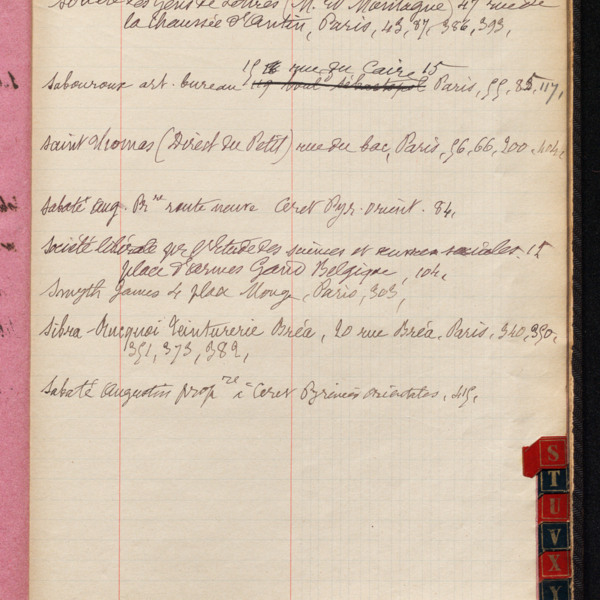 Société des Gens de Lettres (M. W Montagne) 47 rue de
la Chaussée d'Antin, Paris, 43, 87, 386, 393,
15 rue du Caire 15
Sabouroux art. bureau 119 boul Sébastopol Paris, 55, 85, 117,
Saint Thomas (Direct du Petit) rue du bac, Paris, 56, 66, 300, 404,
Sabaté Aug. Pr re route neuve Ceret Pyr. Orient. 84,
Société libérale pr l'Etude des sciences et sociales. 15
place d'armes Gand Belgique, 104,
Smyth James 4 place Monge, Paris, 303,
Silva Teinturerie Bréa, 20 rue Bréa, Paris, 340, 350,
351, 373, 382,
Sabaté Augustin prop re à Ceret Pyrénées orientales, 415,
S
T
U
V
X
Y